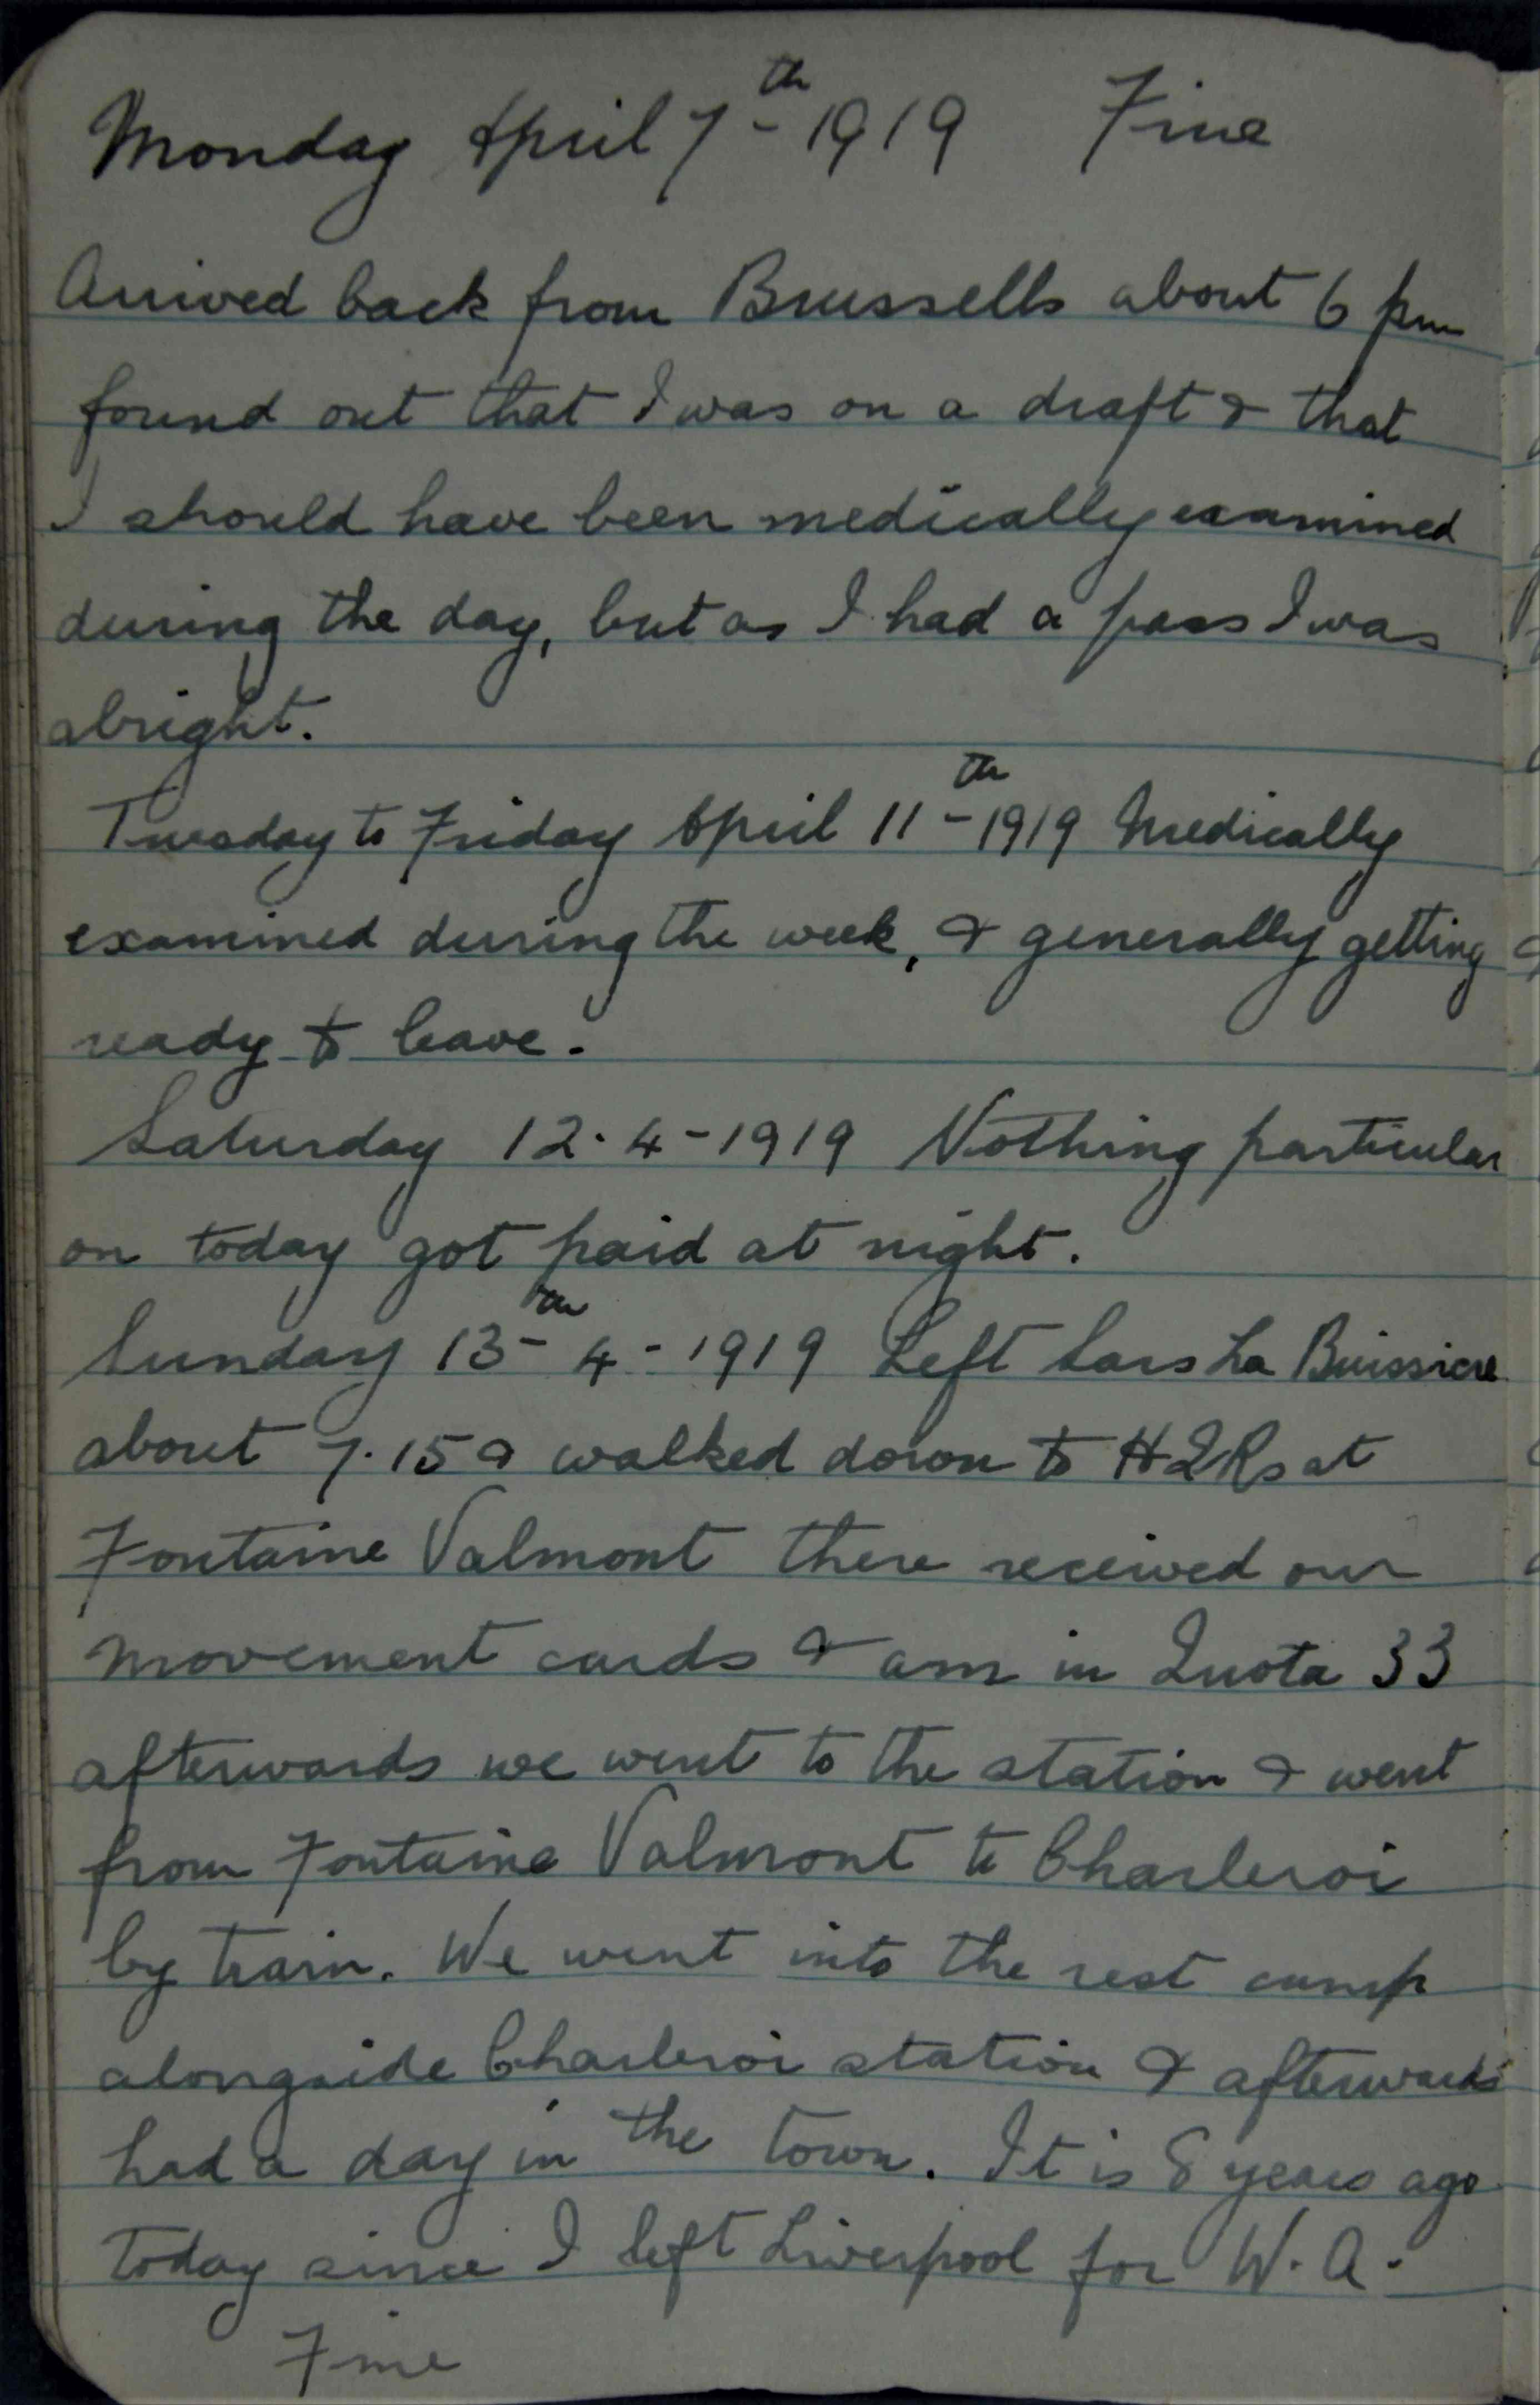 Monday April 7th 1919 Fine
Arrived back from Brussells about 6 pm
found out that I was on a draft & that
I should have been medically examined
during the day, but as I had a pass I was
alright.
Tuesday to Friday April 11th 1919 Medically
examined during the week, & generally getting
ready to leave.
Saturday 12.4-1919 Nothing particular
on today got paid at night.
Sunday 13th 4-1919 Left Sars La Buissiere
about 7.15 & walked down to HQRs at
Fontaine Valmont there received our
movement cards & am in Quota 33
afterwards we went to the station & went
from Fontaine Valmont to Charleroi
by train. We went into the rest camp
alongside Charleroi station & afterwards
had a day in the town. It is 8 years ago
today since I left Liverpool for W.A.
Fine